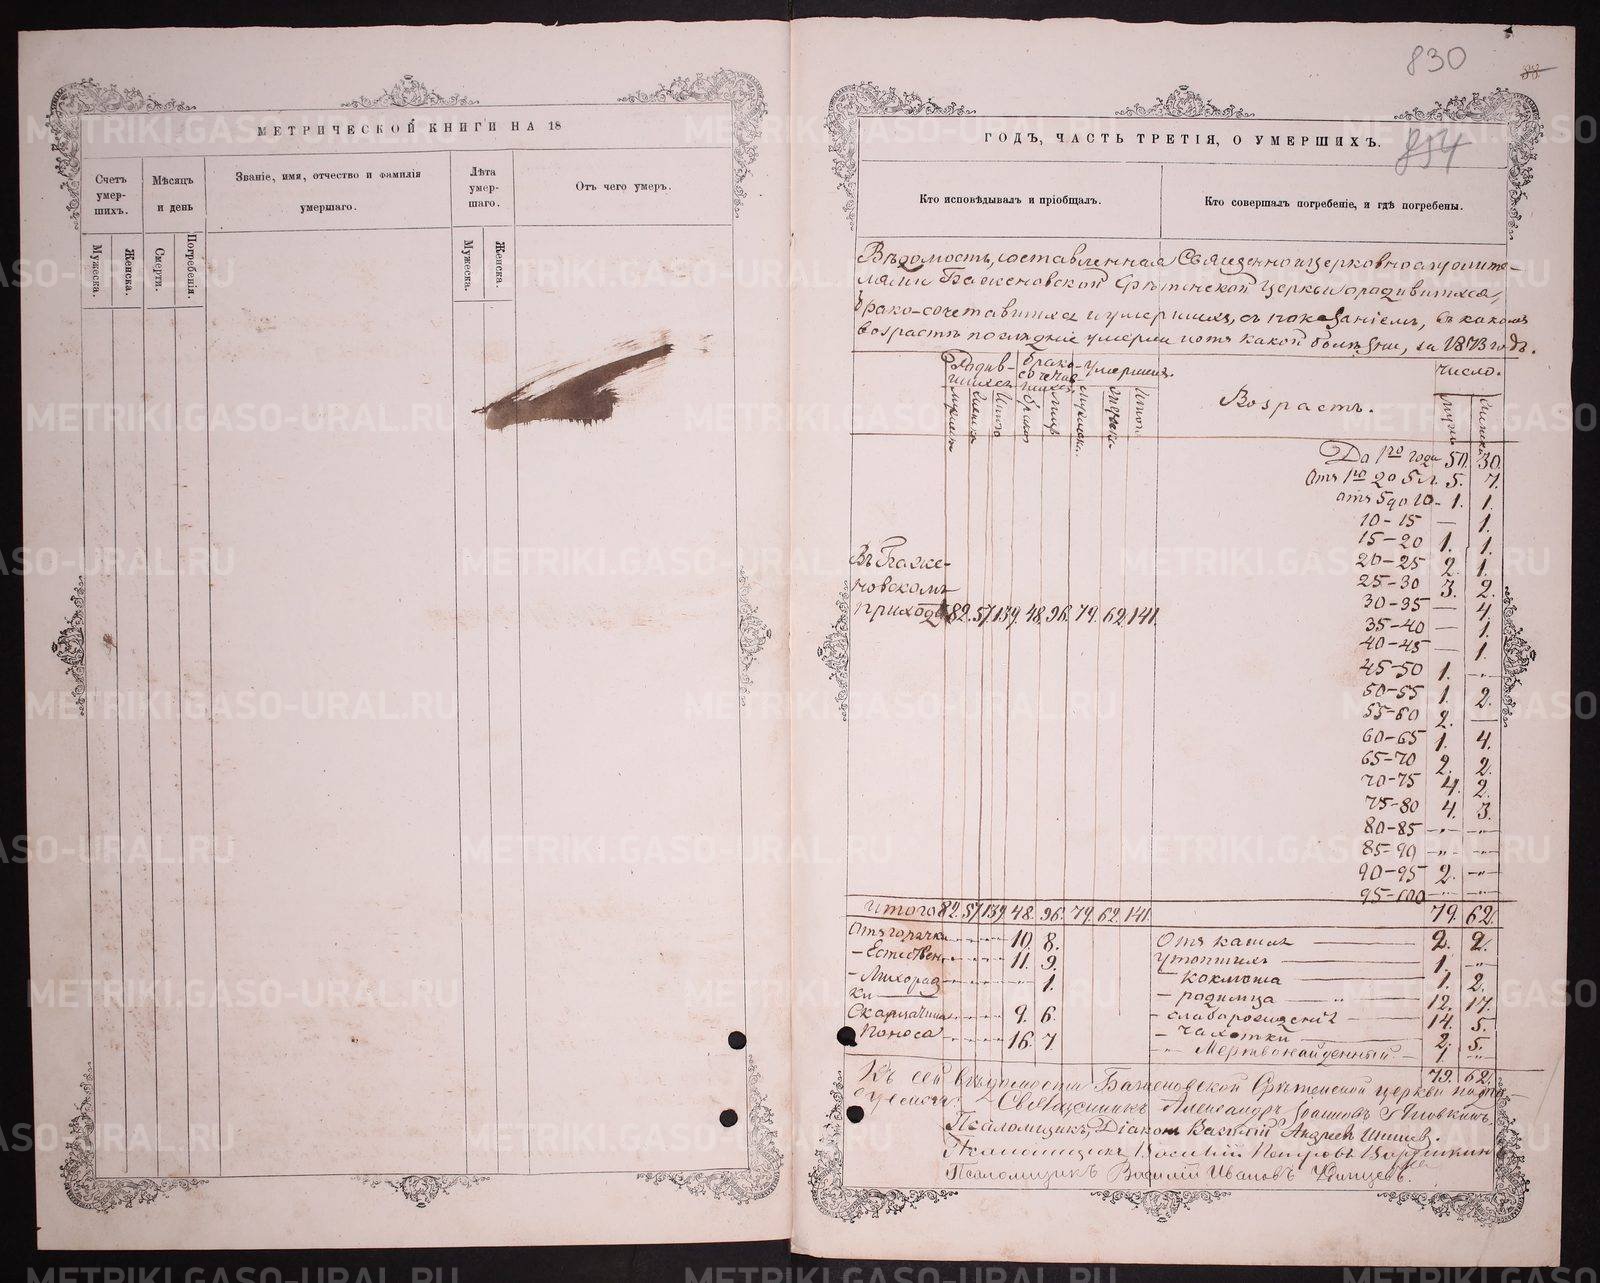 МЕТРИЧЕСКОЙ КНИГИ НА 18
Счетъ умер-шихъ.
Мѣсяцъ и день
Званіе, имя, отчество и фамилія умершаго.
Лѣта умер-шаго.
Отъ чего умеръ.
Мужеска.
Женска.
Смерти.
Погребенія.
Мужеска.
Женска.
830
88
ГОДЪ, ЧАСТЬ ТРЕТІЯ, О УМЕРШИХЪ.
854
Кто исповѣдывалъ и пріобщалъ.
Кто совершалъ погребеніе, и гдѣ погребены.
Вѣдомость, составленная Священноцерковнослужите-
лями Баженовской Срѣтенской церкви о родившихся,
брако-сочетавшихся и умершихъ, съ показаніемъ, въ какомъ
возрастѣ послѣдніе умерли и отъ какой болѣзни, за 1873 годъ.
Родив-шихся
брако-сочетав-шихся
умершихъ.
Возрастъ.
число.
До 1го года 50. 30.
Отъ 1го до 5 л. 5. 7.
отъ 5 до 10 - 1. 1.
10-15 — 1.
15-20 1. 1.
20-25 2. 1.
25-30 3. 2.
30-35 — 4.
35-40 — 1.
40-45 — 1.
45-50 1. -„-
50-55 1. 2.
55-60 2. —
60-65 1. 4.
65-70 2. 2.
70-75 4. 2.
75-80 4. 3.
80-85 -„- -„-
85-90 -„- -„-
90-95 2. -„-
95-100 -„- -„-
Въ Баже-
новскомъ
приходѣ 82. 57. 139. 48. 96. 79. 62. 141.
Итого 82. 57. 139. 48. 96. 79. 62. 141. 79. 62.
Отъ горячки 10. 8.
- Естествен. 11. 9.
- Лихорад-
ки 1.
Скарлатины 9. 6.
Поноса 16. 7.
Отъ кашля 2. 2.
утопшихъ 1. -„-
- коклюша 1. 2.
- родимца 12. 17.
- слаборожденія 14. 5.
- чахотки 2. 5.
-„- Мертвонайденный 1 -„-
79. 62.
Къ сей вѣдомости Баженовской Срѣтенской церкви подпи-
Священникъ Александръ
Псаломщикъ, Діаконъ Василій Андреевъ
Псаломщикъ Василій Петровъ
Псаломщикъ Василій Ивановъ
METRIKI.GASO-URAL.RU